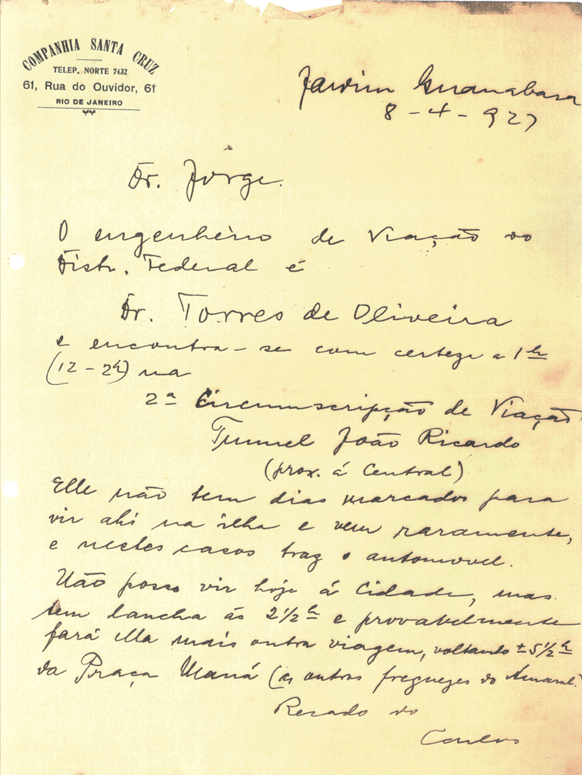 COMPANHIA SANTA CRUZ
TELEP. NORTE 7432
61, Rua do Ouvidor, 61
RIO DE JANEIRO
Jardim Guanabara
8 - 4 - 927
Dr. Jorge.
O engenheiro de Viação do
Distr. Federal é
Dr. Torres de Oliveira
e encontra-se com certeza a 1 hr
(12 - 2h) na
2ª Circumscripção de Viação
Tunnel João Ricardo
(prox. á Central)
Elle não tem dias marcados para
vir ahi na ilha e vem raramente,
e nestes casos traz o automovel.
Não posso vir hoje á Cidade, mas
tem lancha ás 2 1/2 h e provavelmente
fará ella mais outra viagem, voltando ± 5 1/2 h
da Praça Mauá (os outros freguezes do
Recado do